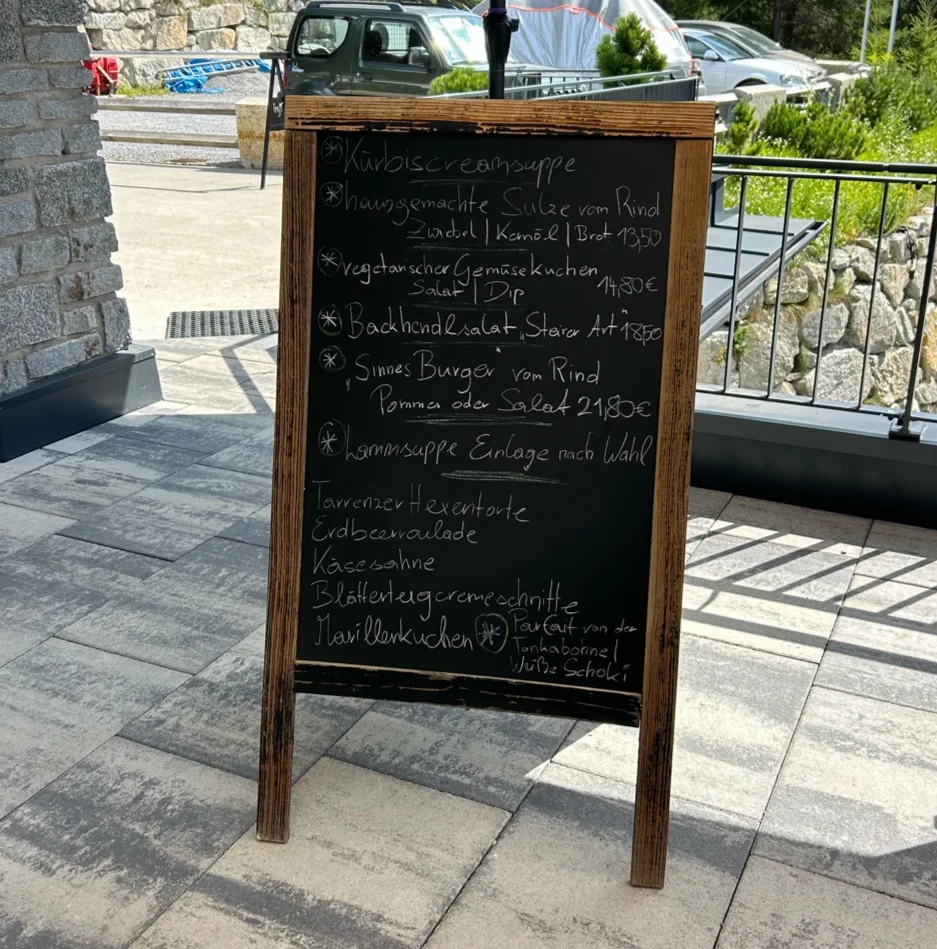 Kürbiscreamsuppe
hausgemachte Sülze vom Rind
Zwiebel | Kernöl | Brot 13,50
vegetarischer Gemüsekuchen
Salat | Dip 14,80€
Backhendlsalat „Steirer Art" 18,50
„Sinnes Burger" vom Rind
Pommes oder Salat 21,80€
Lammsuppe Einlage nach Wahl
Tarrenzer Hexentorte
Erdbeerroulade
Käsesahne
Blätterteigcremeschnitte
Marillenkuchen
Parfait von der
Tonkabohne |
Weiße Schoki